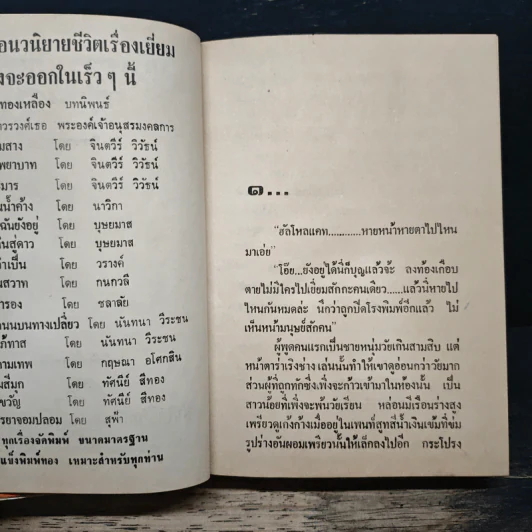 อนวนิยายชีวิตเรื่องเยี่ยม
จะออกในเร็ว ๆ นี้
ทองเหลือง บทนิพนธ์
วรวงศ์เธอ พระองค์เจ้าอนุสรมงคลการ
มสาง โดย จินตวีร์ วิวัธน์
พยาบาท โดย จินตวีร์ วิวัธน์
มาร โดย จินตวีร์ วิวัธน์
นน้ำค้าง โดย นาวิกา
ฉันยังอยู่ โดย บุษยมาส
นสู่ดาว โดย บุษยมาส
ำเป็น โดย วรางค์
นสวาท โดย กนกวลี
ารอง โดย ชลาลัย
นนบนทางเปลี่ยว โดย นันทนา วีระชน
ภ้ทาส โดย นันทนา วีระชน
ามเทพ โดย กฤษณา อโศกสิน
นสีมุก โดย ทัศนีย์ สีทอง
ขวัญ โดย ทัศนีย์ สีทอง
รยาจอมปลอม โดย สุฟ้า
ทุกเรื่องจัดพิมพ์ ขนาดมาตรฐาน
แข็งพิมพ์ทอง เหมาะสำหรับทุกท่าน
๑...
"ฮัลโหลแคท............หายหน้าหายตาไปไหน
มาเอ่ย"
"โอ๊ย...ยังอยู่ได้นี่ก็บุญแล้วจ้ะ ลงท้องเกือบ
ตายไม่มีใครไปเยี่ยมสักกะคนเดียว......แล้วนี่หายไป
ไหนกันหมดล่ะ นึกว่าถูกปิดโรงพิมพ์อีกแล้ว ไม่
เห็นหน้ามนุษย์สักคน"
ผู้พูดคนแรกเป็นชายหนุ่มวัยเกินสามสิบ แต่
หน้าตาร่าเริงช่างเล่นนั้นทำให้เขาดูอ่อนกว่าวัยมาก
ส่วนผู้ที่ถูกทักซึ่งเพิ่งก้าวเข้ามาในห้องนั้น เป็น
สาวน้อยที่เพิ่งจะพ้นวัยเรียน หล่อนมีเรือนร่างสูง
เพรียวดูเก้งก้างเมื่ออยู่ในแพนท์สูทสีน้ำเงินเข้มที่ข่ม
รูปร่างอันผอมเพรียวนั้นให้เล็กลงไปอีก กระโปรง